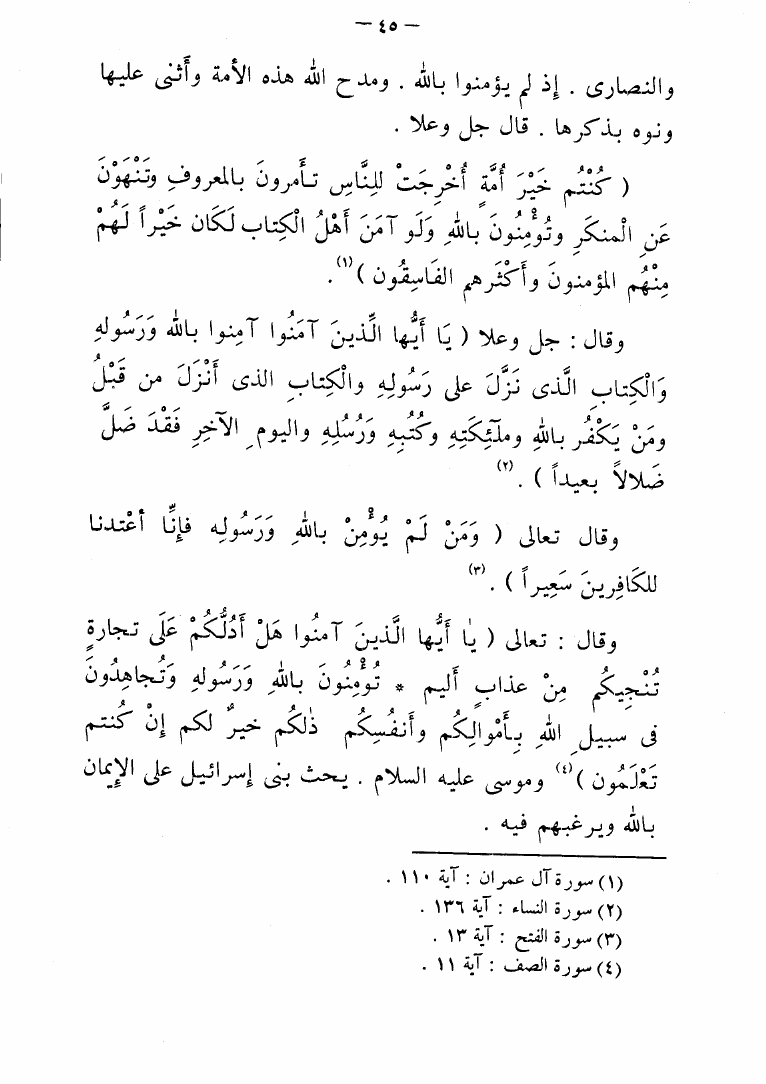 — ٤٥ —
والنصارى . إذ لم يؤمنوا بالله . ومدح الله هذه الأمة وأَثنى عليها
ونوه بذكرها . قال جل وعلا .
( كُنْتُم خَيْرَ أُمَّةٍ أُخْرِجَتْ للِنَّاسِ تأمرونَ بالمعروفِ وتَنْهَوْنَ
عَنِ الْمنكَرِ وتُؤْمِنُونَ باللهِ وَلَو آمَنَ أَهْلُ الْكِتاب لَكَان خَيْراً لَهُمْ
مِنْهُم المؤمنونَ وأَكْثَرهم الفَاسِقُون )(١) .
وقال : جل وعلا ( يَا أَيُّها الَّذينَ آمَنُوا آمِنوا بالله وَرَسُولهِ
وَالْكِتابِ الَّذى نَزَّلَ على رَسُولِهِ والْكِتابِ الذى أَنْزَلَ من قَبْلُ
ومَنْ يَكْفُر باللهِ وملٰئِكَتِهِ وكُتُبِهِ وَرُسُلِهِ واليومِ الآخِرِ فَقْدَ ضَلَّ
ضَلالاً بعيداً ) .(٢)
وقال تعالى ( وَمَنْ لَمْ يُؤْمِنْ باللهِ وَرَسُولِه فإنَّا أعْتدنا
للكَافِرينَ سَعِيراً ) .(٣)
وقال : تعالى ( يٰا أَيُّها الَّذينَ آمنُوا هَلْ أَدُلُّكُمْ عَلَى تجارةٍ
تُنْجِيكُم مِنْ عذابٍ أليم * تُؤْمِنُونَ باللهِ وَرَسُولهِ وتُجاهِدُونَ
فى سبيلِ اللهِ بِأَمْوالِكُم وأَنفُسِكُم ذٰلكُم خيرٌ لكم إنْ كُنتم
تَعْلَمُون )(٤) وموسى عليه السلام . يحث بنى إسرائيل على الإيمان
بالله ويرغبهم فيه .
(١) سورة آل عمران : آية ١١٠ .
(٢) سورة النساء : آية ١٣٦ .
(٣) سورة الفتح : آية ١٣ .
(٤) سورة الصف : آية ١١ .